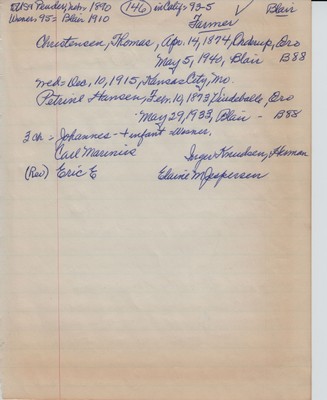 USA Pender, Nebr 1890 (146) in Calif 93-5 √ Blair
Women 95= Blair 1910 Farmer
Christensen, Thomas, Apr. 14, 1874, Ordrup, Bro
May 5, 1940, Blair B88
wed= Dec, 10, 1915, Kansas City, Mo.
Petrine Hansen, Feb. 10, 1873, Vindeballe, Bro
May 29, 1933, Blair - B88
3 ch = Johannes - + infant =
Carl Marinus Inger Knudsen, Herman
(Rev) Eric E Elaine M Jespersen